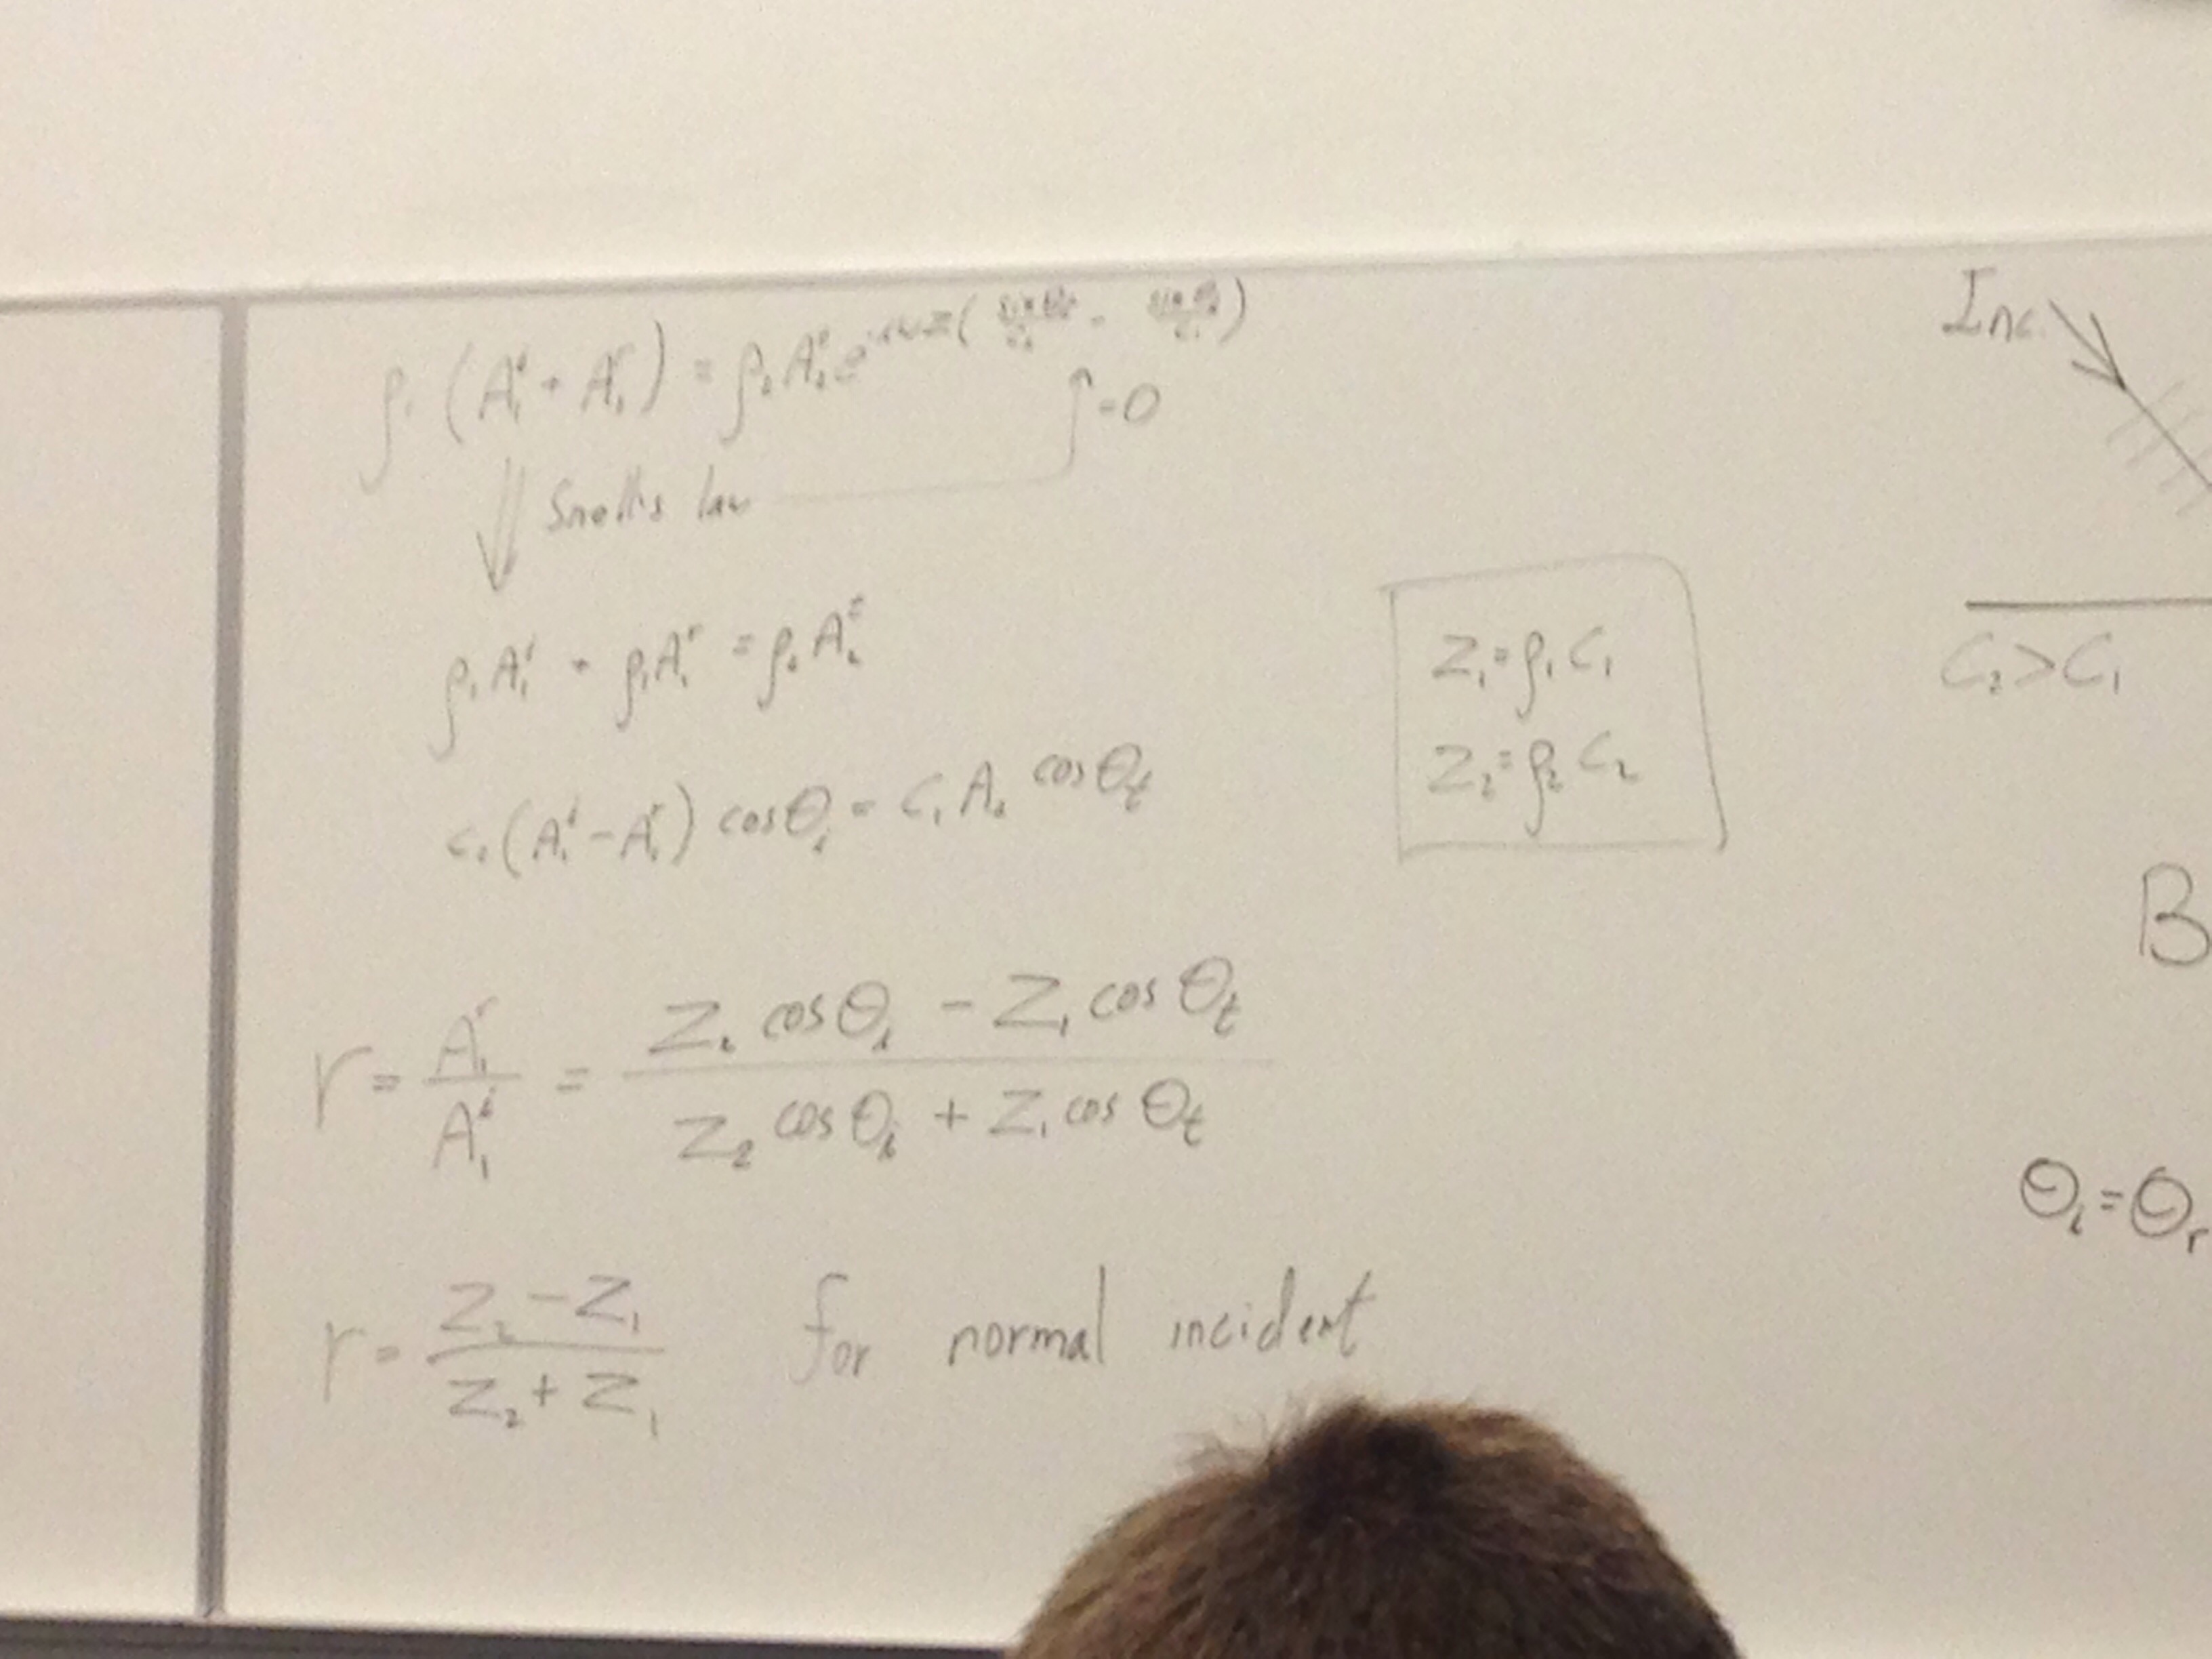 ρ₁ (A₁ⁱ + A₁ʳ) = ρ₂ A₂ᵗ e^{-iωz( sinθₜ/c₂ - sinθᵢ/c₁ )}
↑ = 0
⇓ Snell's law
ρ₁ A₁ⁱ + ρ₁ A₁ʳ = ρ₂ A₂ᵗ
c₂ (A₁ⁱ - A₁ʳ) cos θᵢ = c₁ A₂ cos θₜ
r = A₁ʳ / A₁ⁱ = (Z₂ cos θᵢ - Z₁ cos θₜ) / (Z₂ cos θᵢ + Z₁ cos θₜ)
r = (Z₂ - Z₁) / (Z₂ + Z₁) for normal incident
Z₁ = ρ₁ c₁
Z₂ = ρ₂ c₂
Inc.
C₂ > C₁
B
θᵢ = θᵣ